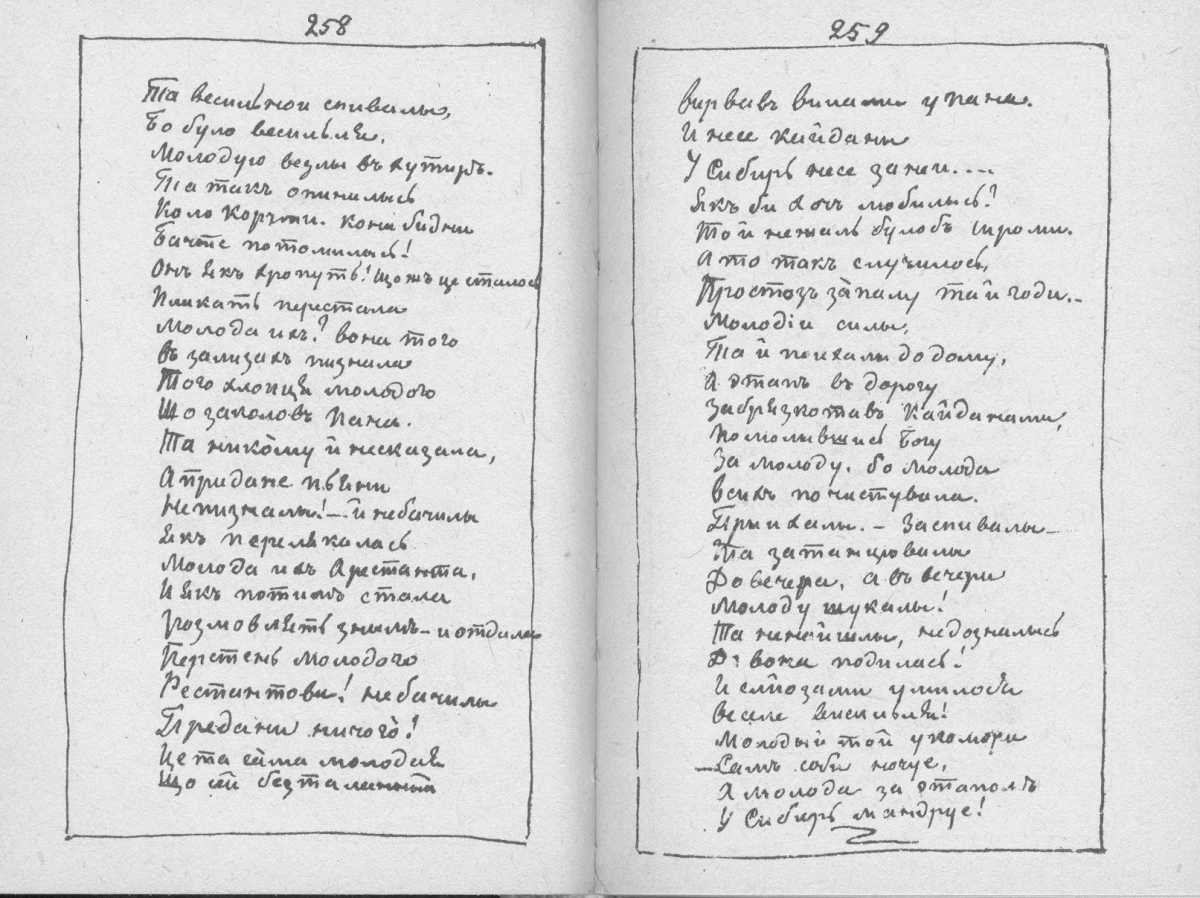 258
Та весильнои спивалы,
Бо було весильля,
Молодую везлы въ хутиръ.
Та такъ опинылысь
Коло корчми. кони бидни
Бачте потомилысь!
Онъ якъ хропуть! Щожъ це сталось
Плакать перестала
Молода ихъ? вона того
Въ зализахъ пизнала
Того хлопця молодого
Що заколовъ пана.
Та никому й несказала,
А придане пьяни
Непизналы! — й небачилы
Якъ перелякалась
Молода ихъ Арестанта,
И якъ потимъ стала
Розмовлять знимъ — и отдала
Перстень молодого
Рестантови! небачилы
Придани ничого!
Це та сама молодая
Що ій безталанный
259
вирвавъ вилами упана.
И несе кайданы
У Сибирь несе занеи....
Якъ би хочъ любилысь!
То й нежаль булобъ щироми.
А то такъ случилось,
Простозъ запалу та й годи. —
Молодіи силы,
Та й поихалы додому,
А этапъ въ дорогу
Забрязкотавъ Кайданами,
Помолывшись Богу
За молоду. бо молода
всихъ почистувала.
Приихалы. — Заспивалы —
Та затанцювалы
До вечера, а въ вечери
Молоду шукалы!
Та ненайшлы, недозналысь
Де вона подилась!
И слёзами умилося
Веселе весильля!
Молодый той укомори
— Самъ соби ночує,
А молода за этапомъ
У Сибирь мандрує!